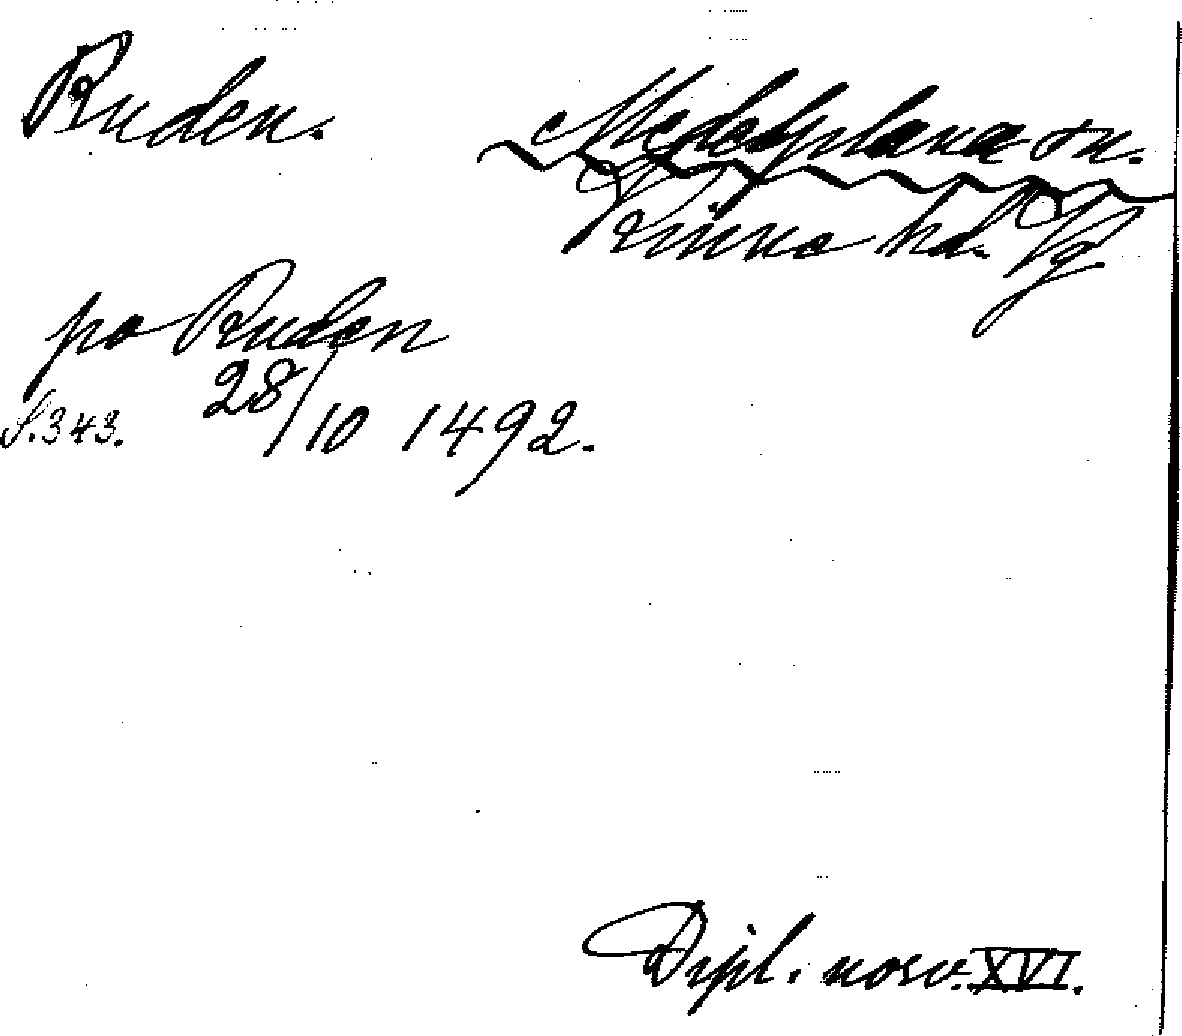 Ruden.
Medelplana sn.
Kinne hd. Vg
po Ruden
28/10 1492.
S. 343.
Dipl. norv. XVI.